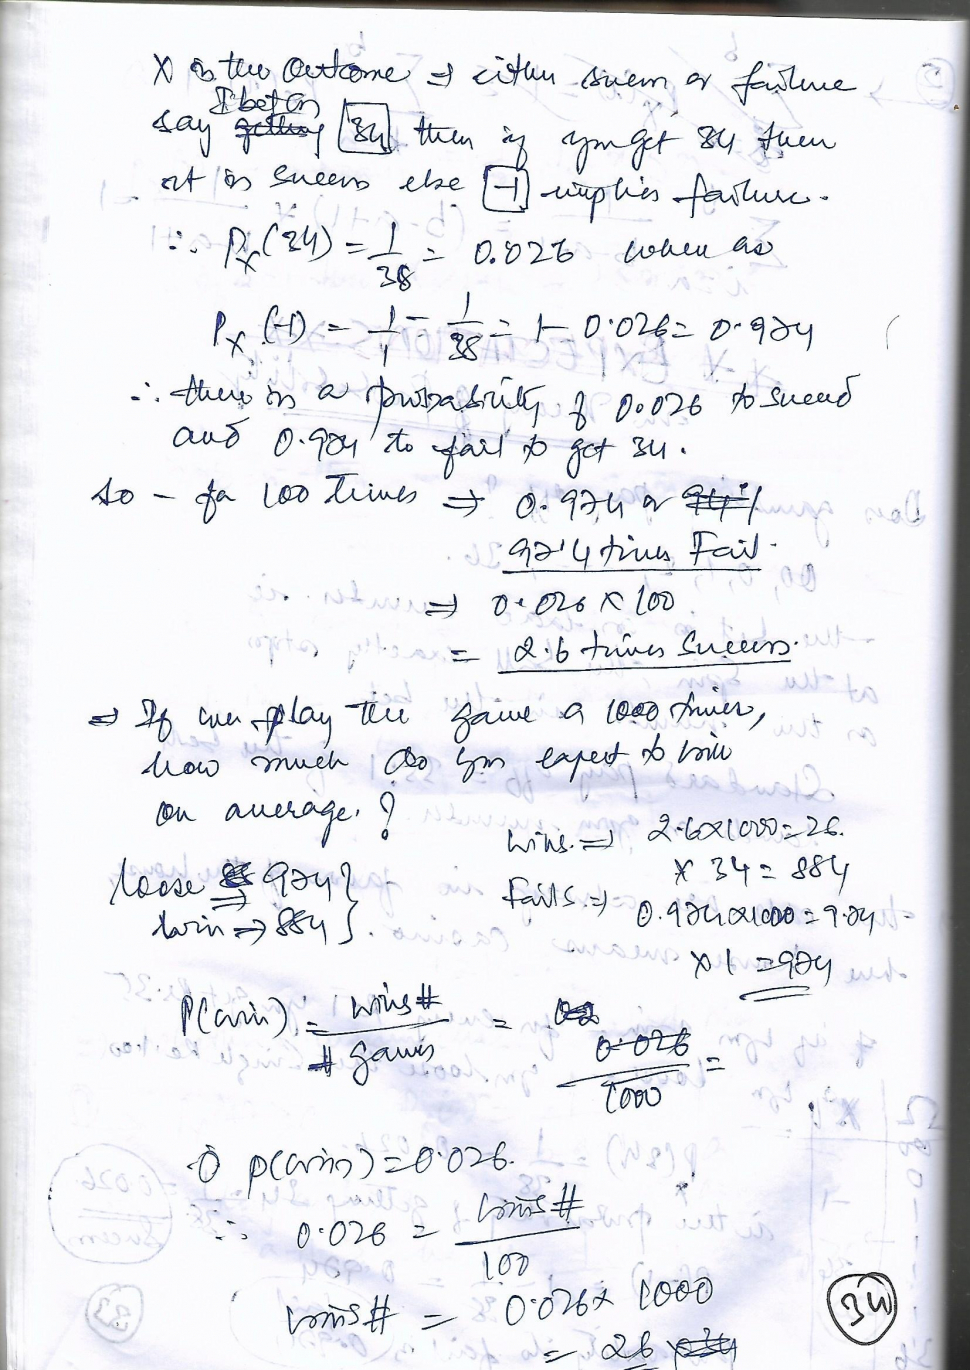 X is the Outcome ⇒ either succes or failure
I bet on
say getting 34 then if you get 34 then
it is succes else -1 implies failure.
∴ Px(34) = 1/38 = 0.026 where as
Px(-1) = 1/1 - 1/38 = 1 - 0.026 = 0.974
∴ there is a probability of 0.026 to succed
and 0.974 to fail to get 34.
so - for 100 Times ⇒ 0.974 or
97.4 times Fail.
⇒ 0.026 × 100
= 2.6 times Success.
⇒ If we play the game a 1000 times,
how much do you expect to win
on average. ?
Wins. ⇒ 2.6×1000 = 26.
× 34 = 884
loose ⇒ 974 }
win ⇒ 884 }
Fails. ⇒ 0.974×1000 = 9.74
× 1 = 974
P(win) = wins# / # games = 0.026 / 1000 =
P(win) = 0.026.
∴ 0.026 = wins# / 100
wins# = 0.026 × 1000
= 26 × 34
34
33